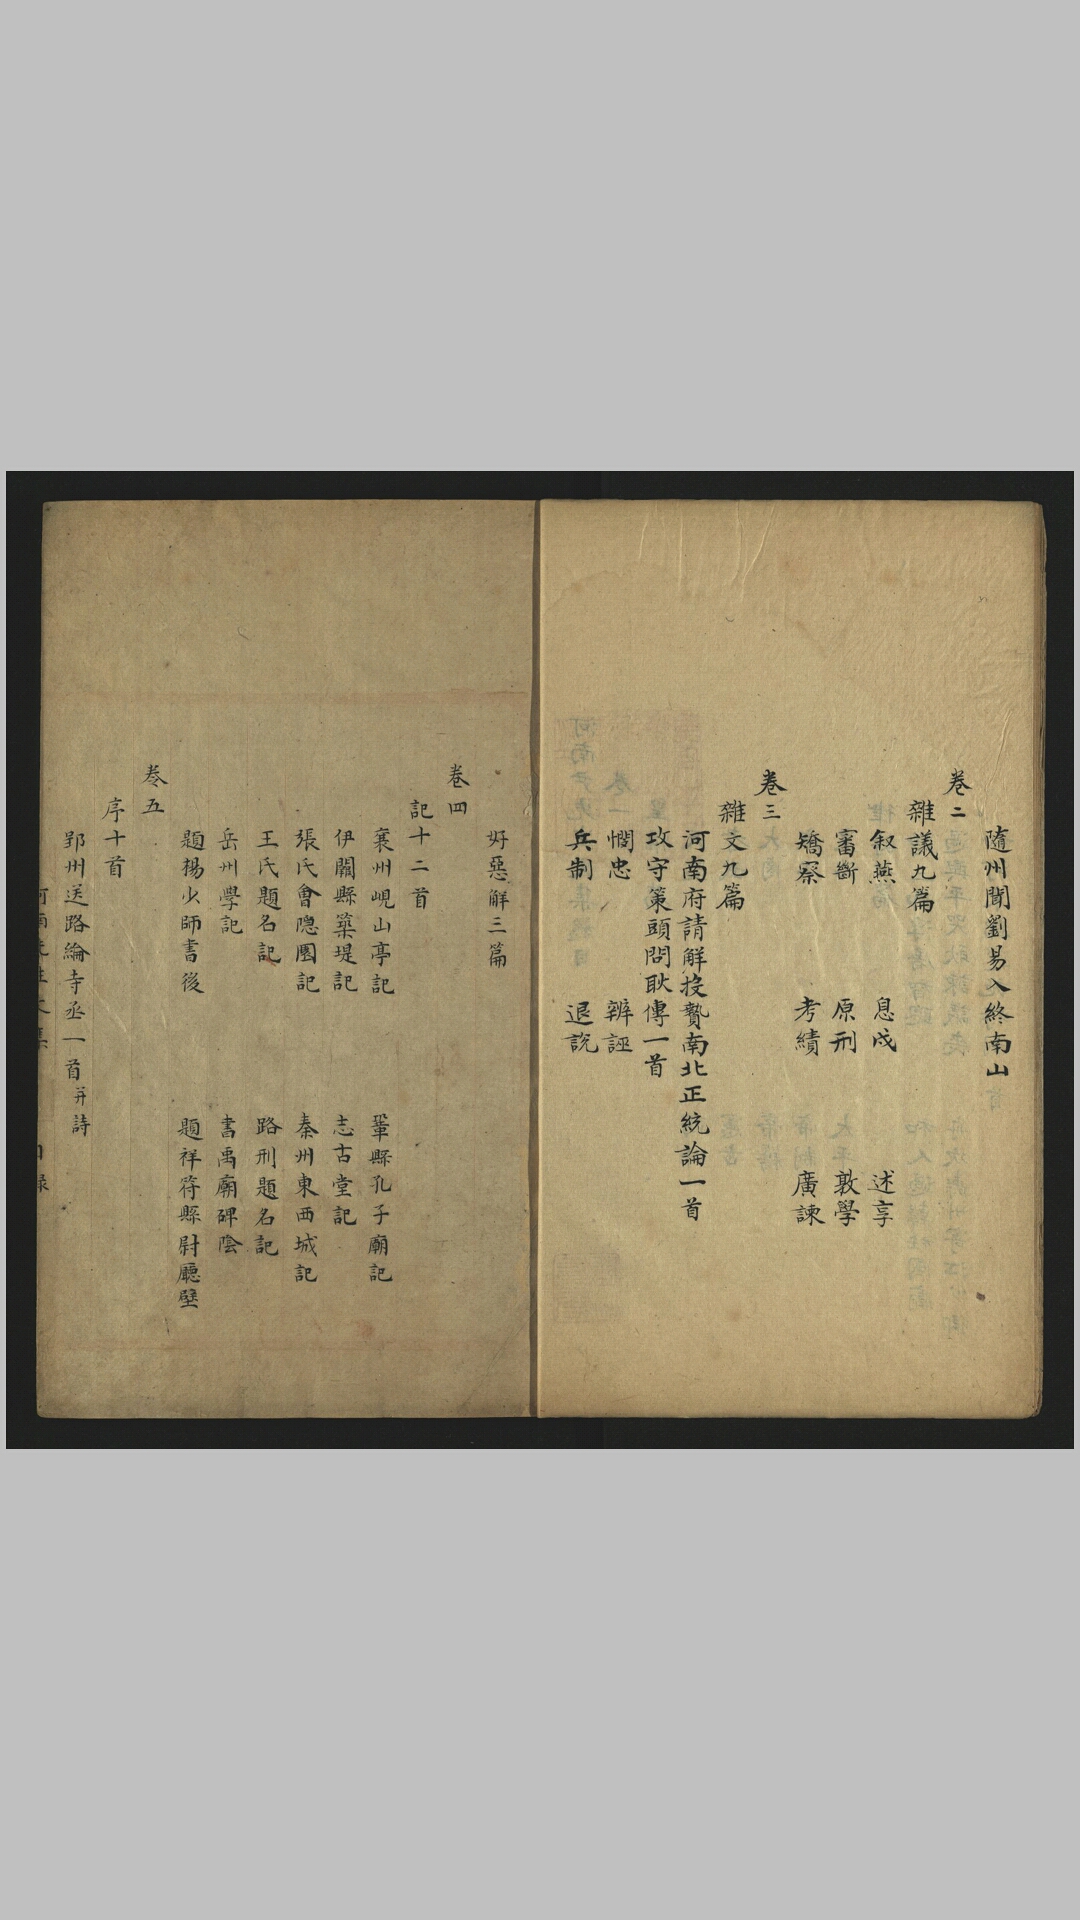 隨州聞劉易入終南山
卷二
雜議九篇
叙燕 息戍 述享
審斷 原刑 敦學
矯察 考績 廣諫
卷三
雜文九篇
河南府請解投贄南北正統論一首
攻守策頭問耿傳一首
憫忠 辨誣
兵制 退說
好惡解三篇
卷四
記十二首
襄州峴山亭記 鞏縣孔子廟記
伊闕縣築堤記 志古堂記
張氏會隱園記 秦州東西城記
王氏題名記 路刑題名記
岳州學記 書禹廟碑陰
題楊少師書後 題祥符縣尉廳壁
卷五
序十首
郢州送路綸寺丞一首并詩